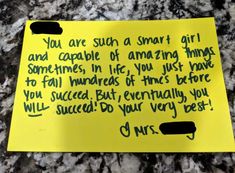 You are such a smart girl
and capable of amazing things.
Sometimes, in life, you just have
to fail hundreds of times before
you succeed. But, eventually, you
WILL succeed! Do your very best!
♡ Mrs.